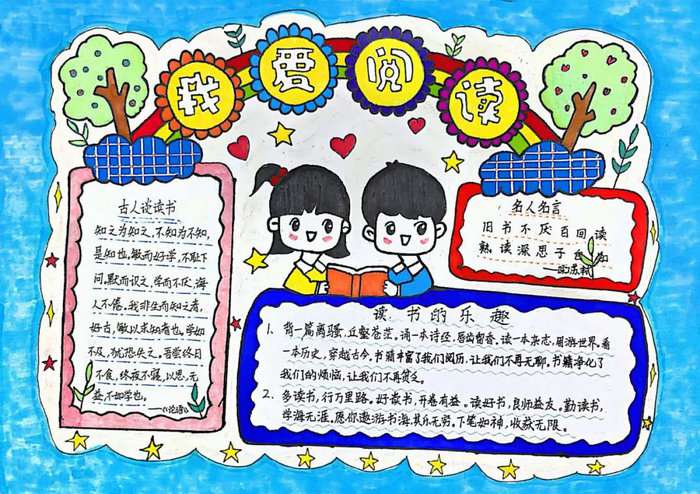 我爱阅读
古人谈读书
知之为知之,不知为不知,
是知也。敏而好学,不耻下
问。默而识之,学而不厌,诲
人不倦。我非生而知之者,
好古,敏以求知者也。学如
不及,犹恐失之。吾尝终日
不食,终夜不寝,以思,无
益,不如学也。
——《论语》
名人名言
旧书不厌百回读
熟读深思子自知
——苏轼
读书的乐趣
1. 背一篇离骚,丘壑苍茫。诵一本诗经,唇齿留香。读一本杂志,周游世界。看
一本历史,穿越古今。书籍丰富了我们阅历,让我们不再无聊。书籍净化了
我们的烦恼,让我们不再贫乏。
2. 多读书,行万里路。好读书,开卷有益。读好书,良师益友。勤读书,
学海无涯。愿你遨游书海,其乐无穷。下笔如神,收益无限。